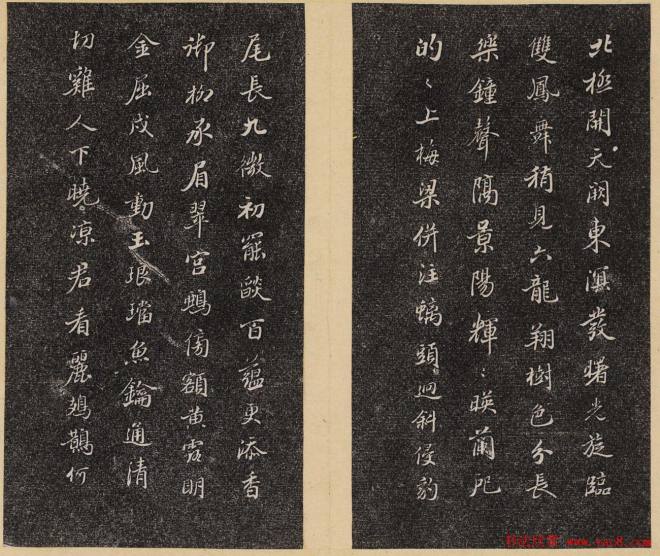 北極開天闕東溟發曙光旋臨
雙鳳舞稍見六龍翔樹色分長
樂鐘聲隔景陽輝〻暎蘭戺
的〻上梅梁併注螭頭迥斜侵豹
尾長九微初罷燄百蘊更添香
御柳承眉翠宮鵶傍額黄露明
金屈戌風動玉琅璫魚鑰通清
切雞人下曉凉君看麗鳷鵲何